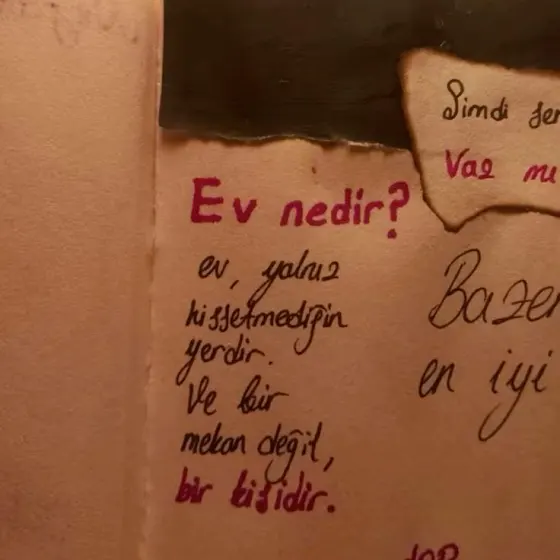 Şimdi
Vaz mı
Ev nedir?
ev, yalnız
hissetmediğin
yerdir.
Ve bir
mekan değil,
bir kişidir.
en iyi